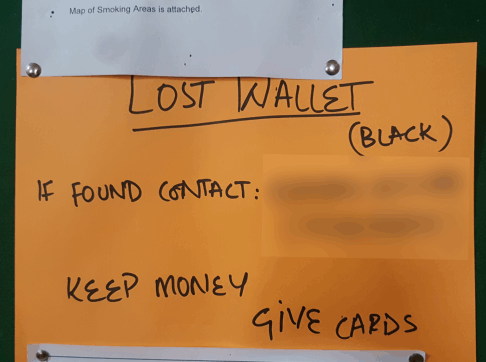 Map of Smoking Areas is attached.
LOST WALLET
(BLACK)
IF FOUND CONTACT:
KEEP MONEY
GIVE CARDS